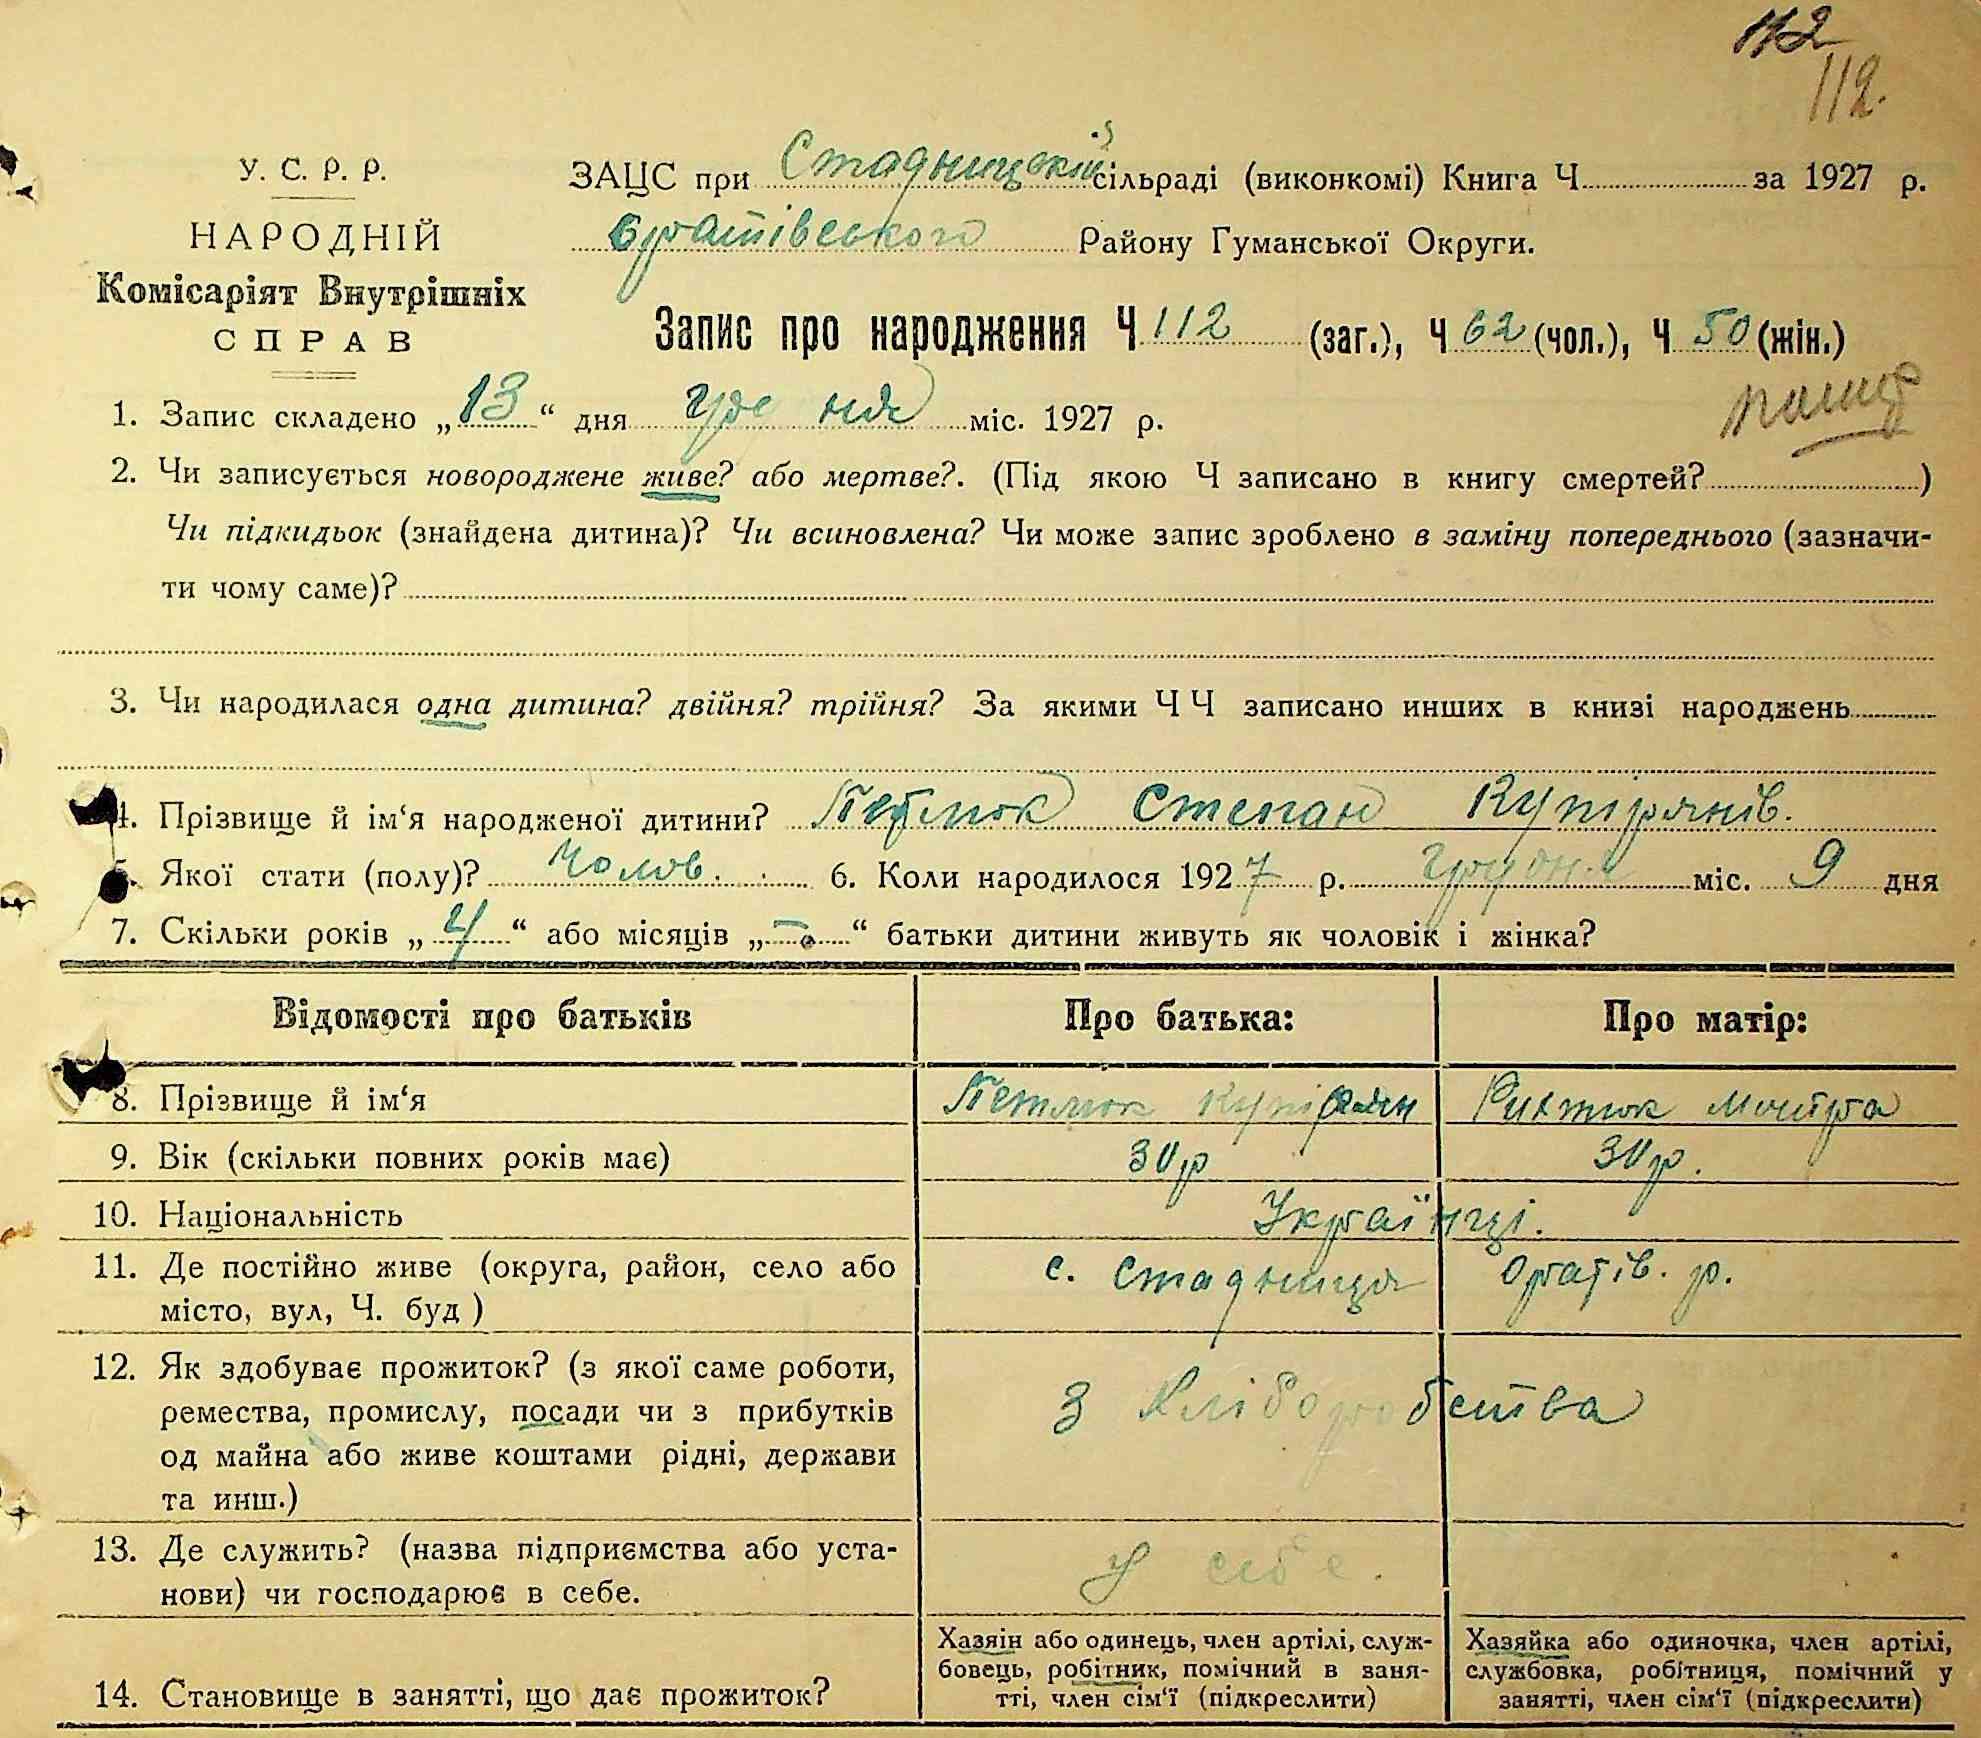 112
112.
У. С. Р. Р.
НАРОДНІЙ
Комісаріят Внутрішніх
СПРАВ
ЗАЦС при Стадницькій сільраді (виконкомі) Книга Ч за 1927 р.
Оратівського Району Гуманської Округи.
Запис про народження Ч 112 (заг.), Ч 62 (чол.), Ч 50 (жін.)
1. Запис складено „13“ дня грудня міс. 1927 р.
2. Чи записується новороджене живе? або мертве?. (Під якою Ч записано в книгу смертей? )
Чи підкидьок (знайдена дитина)? Чи всиновлена? Чи може запис зроблено в заміну попереднього (зазначи-
ти чому саме)?
3. Чи народилася одна дитина? двійня? трійня? За якими Ч Ч записано инших в книзі народжень
4. Прізвище й ім‘я народженої дитини? Петлюк Степан Купріянів.
5. Якої стати (полу)? Чолов. 6. Коли народилося 1927 р. грудня міс. 9 дня
7. Скільки років „4“ або місяців „—“ батьки дитини живуть як чоловік і жінка?
Відомості про батьків Про батька: Про матір:
8. Прізвище й ім‘я Петлюк
9. Вік (скільки повних років має) 30 р 30 р.
10. Національність Українці.
11. Де постійно живе (округа, район, село або с. Стадниця Оратів. р.
місто, вул, Ч. буд )
12. Як здобуває прожиток? (з якої саме роботи,
ремества, промислу, посади чи з прибутків З Хліборобства
од майна або живе коштами рідні, держави
та инш.)
13. Де служить? (назва підприємства або уста- у себе.
нови) чи господарює в себе.
14. Становище в занятті, що дає прожиток?
Хазяін або одинець, член артілі, служ-
бовець, робітник, помічний в заня-
тті, член сім‘ї (підкреслити)
Хазяйка або одиночка, член артілі,
службовка, робітниця, помічний у
занятті, член сім‘ї (підкреслити)